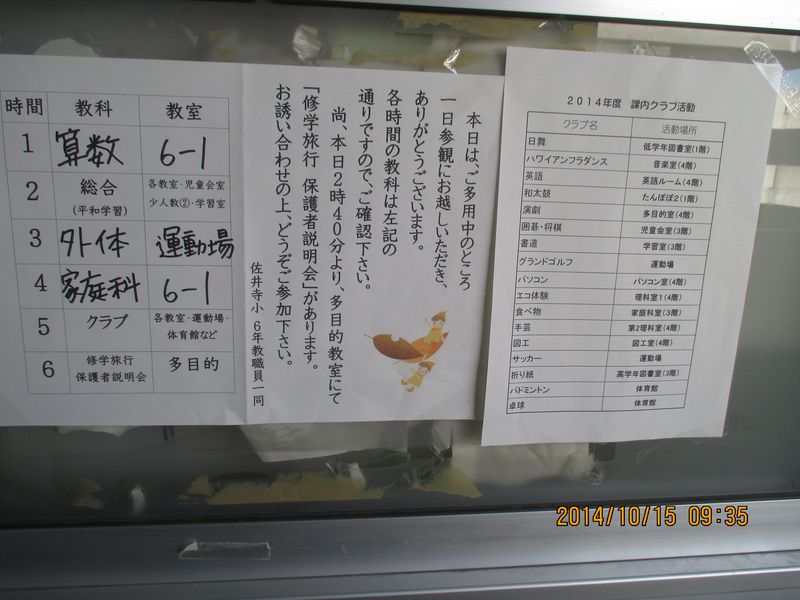 時間 教科 教室
1 算数 6-1
2 総合 (平和学習) 各教室・児童会室 少人数②・学習室
3 外体 運動場
4 家庭科 6-1
5 クラブ 各教室・運動場・体育館など
6 修学旅行 保護者説明会 多目的
本日は、ご多用中のところ
一日参観にお越しいただき、
ありがとうございます。
各時間の教科は左記の
通りですので、ご確認下さい。
尚、本日2時40分より、多目的教室にて
「修学旅行 保護者説明会」があります。
お誘い合わせの上、どうぞご参加下さい。
佐井寺小 6年教職員一同
2014年度 課内クラブ活動
クラブ名 活動場所
日舞 低学年図書室(1階)
ハワイアンフラダンス 音楽室(4階)
英語 英語ルーム(4階)
和太鼓 たんぽぽ2(1階)
演劇 多目的室(4階)
囲碁・将棋 児童会室(3階)
書道 学習室(3階)
グランドゴルフ 運動場
パソコン パソコン室(4階)
エコ体験 理科室1(4階)
食べ物 家庭科室(3階)
手芸 第2理科室(4階)
図工 図工室(4階)
サッカー 運動場
折り紙 高学年図書室(3階)
バドミントン 体育館
卓球 体育館
2014/10/15 09:35